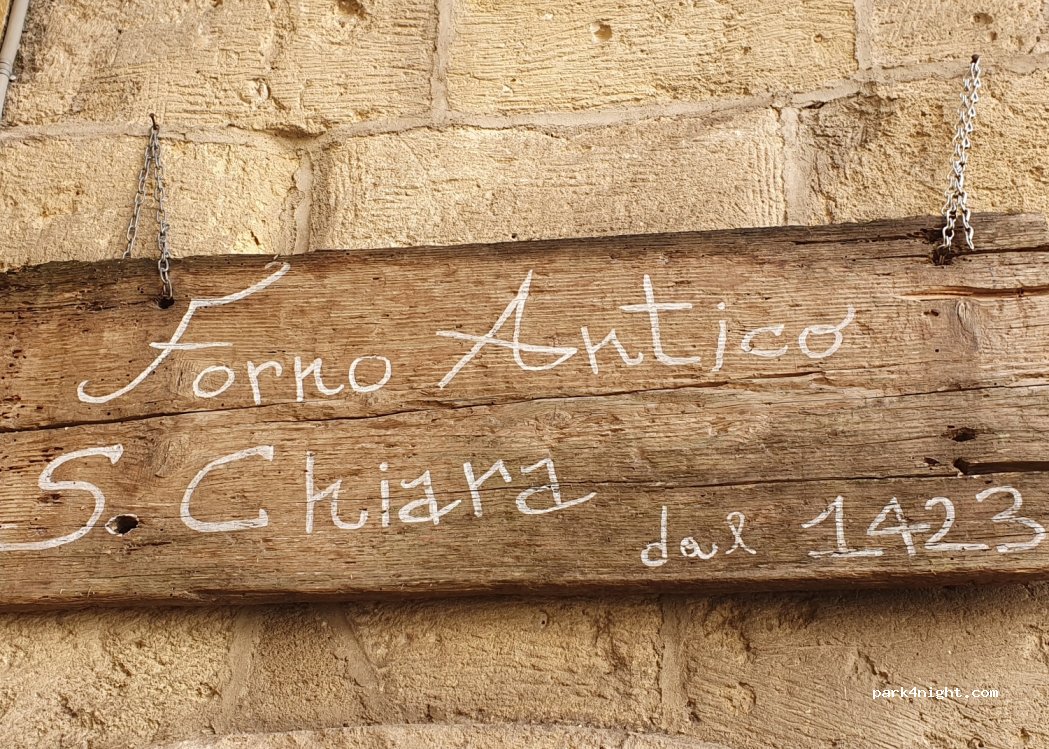 Forno Antico
S. Chiara
dal 1423
park4night.com